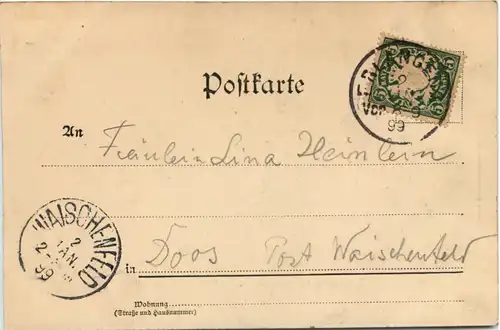 Postkarte
An Fräulein Lina Heinlein
WAISCHENFELD
2
JAN.
99
in Doos Post Waischenfeld
99
Wohnung
(Straße und Hausnummer)